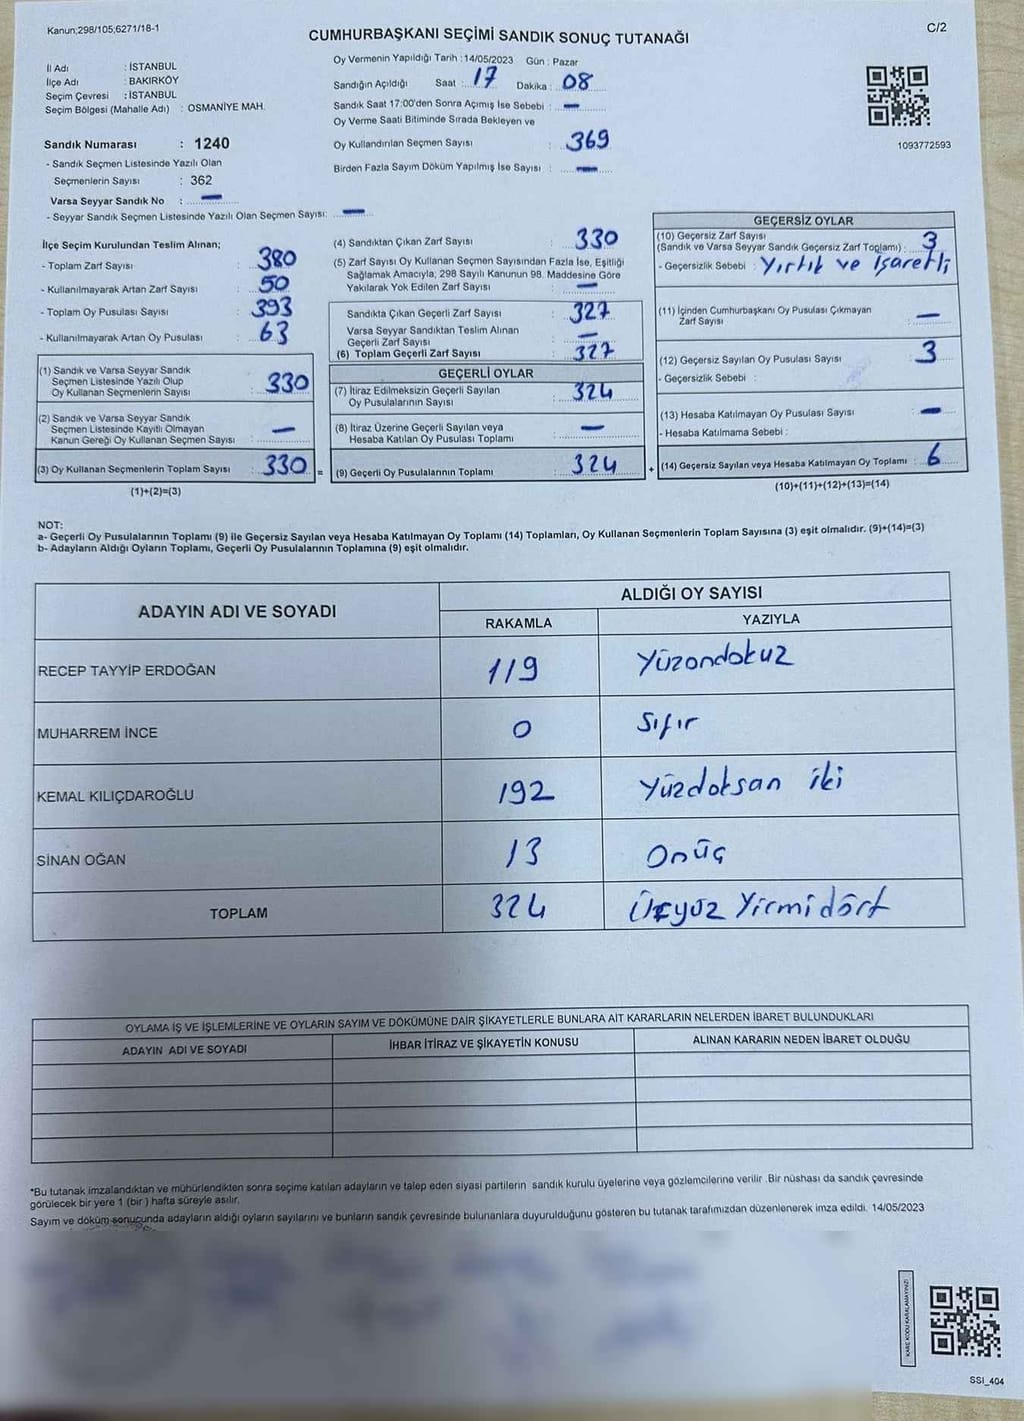 Kanun;298/105;6271/18-1
C/2
CUMHURBAŞKANI SEÇİMİ SANDIK SONUÇ TUTANAĞI
İl Adı : İSTANBUL
İlçe Adı : BAKIRKÖY
Seçim Çevresi : İSTANBUL
Seçim Bölgesi (Mahalle Adı) : OSMANİYE MAH.
Sandık Numarası : 1240
- Sandık Seçmen Listesinde Yazılı Olan
Seçmenlerin Sayısı : 362
Varsa Seyyar Sandık No : —
- Seyyar Sandık Seçmen Listesinde Yazılı Olan Seçmen Sayısı: —
Oy Vermenin Yapıldığı Tarih :14/05/2023 Gün : Pazar
Sandığın Açıldığı Saat : 17 Dakika : 08
Sandık Saat 17:00'den Sonra Açımış İse Sebebi : —
Oy Verme Saati Bitiminde Sırada Bekleyen ve
Oy Kullandırılan Seçmen Sayısı : 369
Birden Fazla Sayım Döküm Yapılmış İse Sayısı : —
1093772593
İlçe Seçim Kurulundan Teslim Alınan;
- Toplam Zarf Sayısı : 380
- Kullanılmayarak Artan Zarf Sayısı : 50
- Toplam Oy Pusulası Sayısı : 393
- Kullanılmayarak Artan Oy Pusulası : 63
(1) Sandık ve Varsa Seyyar Sandık
Seçmen Listesinde Yazılı Olup
Oy Kullanan Seçmenlerin Sayısı : 330
(2) Sandık ve Varsa Seyyar Sandık
Seçmen Listesinde Kayıtlı Olmayan
Kanun Gereği Oy Kullanan Seçmen Sayısı : —
(3) Oy Kullanan Seçmenlerin Toplam Sayısı : 330 =
(1)+(2)=(3)
(4) Sandıktan Çıkan Zarf Sayısı : 330
(5) Zarf Sayısı Oy Kullanan Seçmen Sayısından Fazla İse, Eşitliği
Sağlamak Amacıyla; 298 Sayılı Kanunun 98. Maddesine Göre
Yakılarak Yok Edilen Zarf Sayısı : —
Sandıkta Çıkan Geçerli Zarf Sayısı : 327
Varsa Seyyar Sandıktan Teslim Alınan
Geçerli Zarf Sayısı : —
(6) Toplam Geçerli Zarf Sayısı : 327
GEÇERLİ OYLAR
(7) İtiraz Edilmeksizin Geçerli Sayılan
Oy Pusulalarının Sayısı : 324
(8) İtiraz Üzerine Geçerli Sayılan veya
Hesaba Katılan Oy Pusulası Toplamı : —
(9) Geçerli Oy Pusulalarının Toplamı : 324 +
GEÇERSİZ OYLAR
(10) Geçersiz Zarf Sayısı
(Sandık ve Varsa Seyyar Sandık Geçersiz Zarf Toplamı) : 3
- Geçersizlik Sebebi : Yırtık ve İşaretli
(11) İçinden Cumhurbaşkanı Oy Pusulası Çıkmayan
Zarf Sayısı : —
(12) Geçersiz Sayılan Oy Pusulası Sayısı : 3
- Geçersizlik Sebebi :
(13) Hesaba Katılmayan Oy Pusulası Sayısı : —
- Hesaba Katılmama Sebebi :
(14) Geçersiz Sayılan veya Hesaba Katılmayan Oy Toplamı : 6
(10)+(11)+(12)+(13)=(14)
NOT:
a- Geçerli Oy Pusulalarının Toplamı (9) ile Geçersiz Sayılan veya Hesaba Katılmayan Oy Toplamı (14) Toplamları, Oy Kullanan Seçmenlerin Toplam Sayısına (3) eşit olmalıdır. (9)+(14)=(3)
b- Adayların Aldığı Oyların Toplamı, Geçerli Oy Pusulalarının Toplamına (9) eşit olmalıdır.
ADAYIN ADI VE SOYADI
ALDIĞI OY SAYISI
RAKAMLA YAZIYLA
RECEP TAYYİP ERDOĞAN 119 Yüzondokuz
MUHARREM İNCE 0 Sıfır
KEMAL KILIÇDAROĞLU 192 Yüzdoksan iki
SİNAN OĞAN 13 Onüç
TOPLAM 324 Üçyüz Yirmi dört
OYLAMA İŞ VE İŞLEMLERİNE VE OYLARIN SAYIM VE DÖKÜMÜNE DAİR ŞİKAYETLERLE BUNLARA AİT KARARLARIN NELERDEN İBARET BULUNDUKLARI
ADAYIN ADI VE SOYADI İHBAR İTİRAZ VE ŞİKAYETİN KONUSU ALINAN KARARIN NEDEN İBARET OLDUĞU
*Bu tutanak imzalandıktan ve mühürlendikten sonra seçime katılan adayların ve talep eden siyasi partilerin sandık kurulu üyelerine veya gözlemcilerine verilir .Bir nüshası da sandık çevresinde
görülecek bir yere 1 (bir ) hafta süreyle asılır.
Sayım ve döküm sonucunda adayların aldığı oyların sayılarını ve bunların sandık çevresinde bulunanlara duyurulduğunu gösteren bu tutanak tarafımızdan düzenlenerek imza edildi. 14/05/2023
KARE KODU KARALAMAYINIZ!
SSI_404